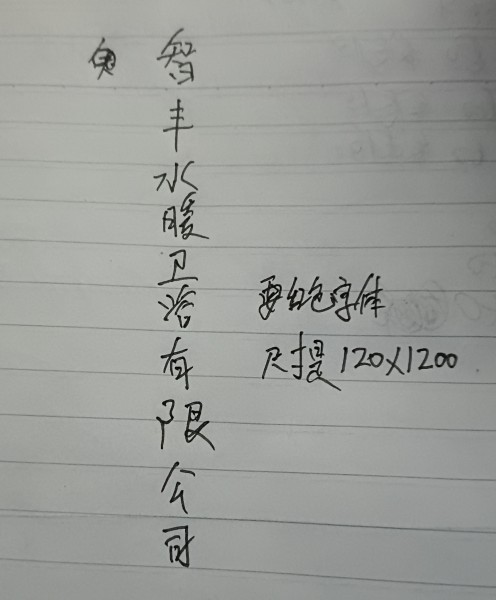 智丰水暖卫浴有限公司
要红色字体
尺提120X1200